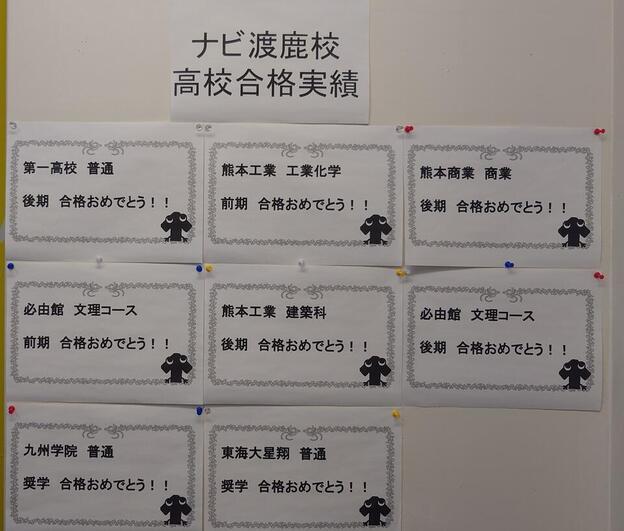 ナビ渡鹿校
高校合格実績
第一高校 普通
後期 合格おめでとう！！
熊本工業 工業化学
前期 合格おめでとう！！
熊本商業 商業
後期 合格おめでとう！！
必由館 文理コース
前期 合格おめでとう！！
熊本工業 建築科
後期 合格おめでとう！！
必由館 文理コース
後期 合格おめでとう！！
九州学院 普通
奨学 合格おめでとう！！
東海大星翔 普通
奨学 合格おめでとう！！